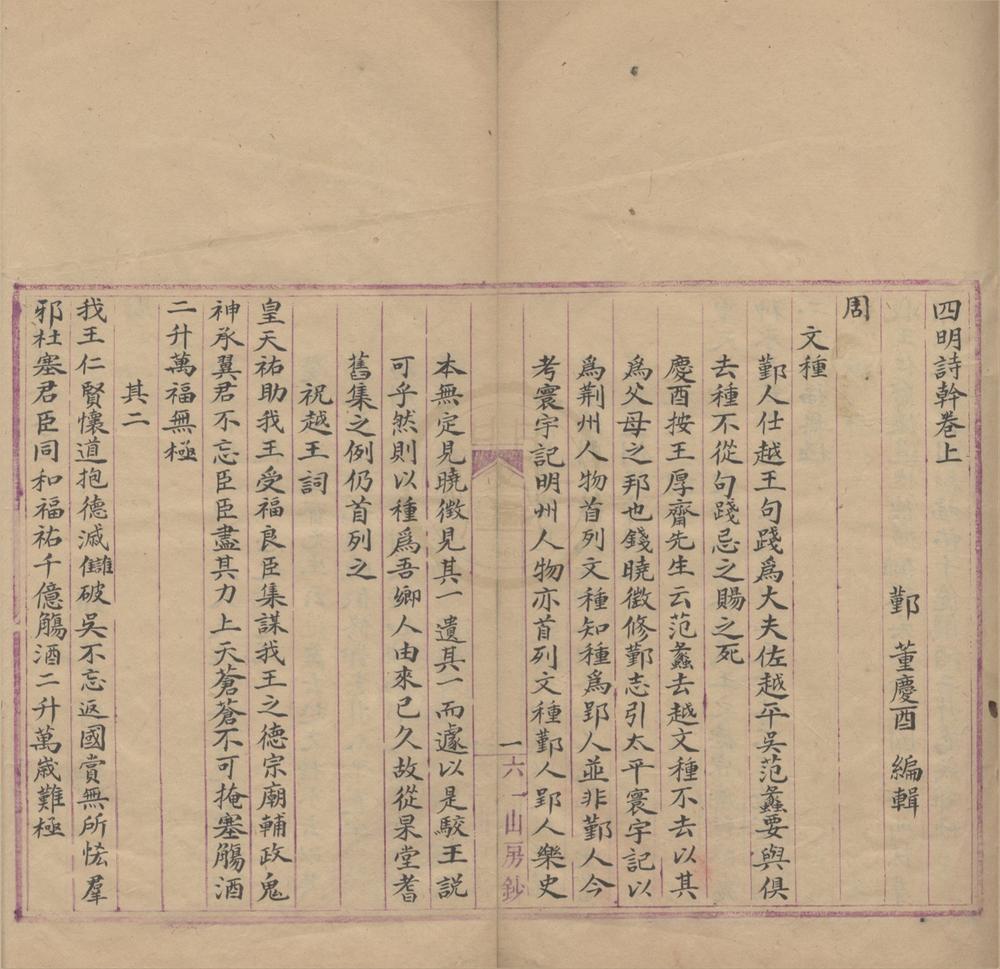 四明詩幹卷上
鄞 董慶酉 編輯
周
文種
鄞人仕越王句踐爲大夫佐越平吳范蠡要與俱
去種不從句踐忌之賜之死
慶酉按王厚齋先生云范蠡去越文種不去以其
爲父母之邦也錢曉徵修鄞志引太平寰宇記以
爲荆州人物首列文種知種爲郢人並非鄞人今
考寰宇記明州人物亦首列文種鄞人郢人樂史
一 六一山房鈔
本無定見曉徵見其一遺其一而遽以是駮王説
可乎然則以種爲吾鄉人由來已久故從杲堂耆
舊集之例仍首列之
祝越王詞
皇天祐助我王受福良臣集謀我王之德宗廟輔政鬼
神承翼君不忘臣臣盡其力上天蒼蒼不可掩塞觴酒
二升萬福無極
其二
我王仁賢懷道抱德滅讎破吳不忘返國賞無所恡羣
邪杜塞君臣同和福祐千億觴酒二升萬歲難極